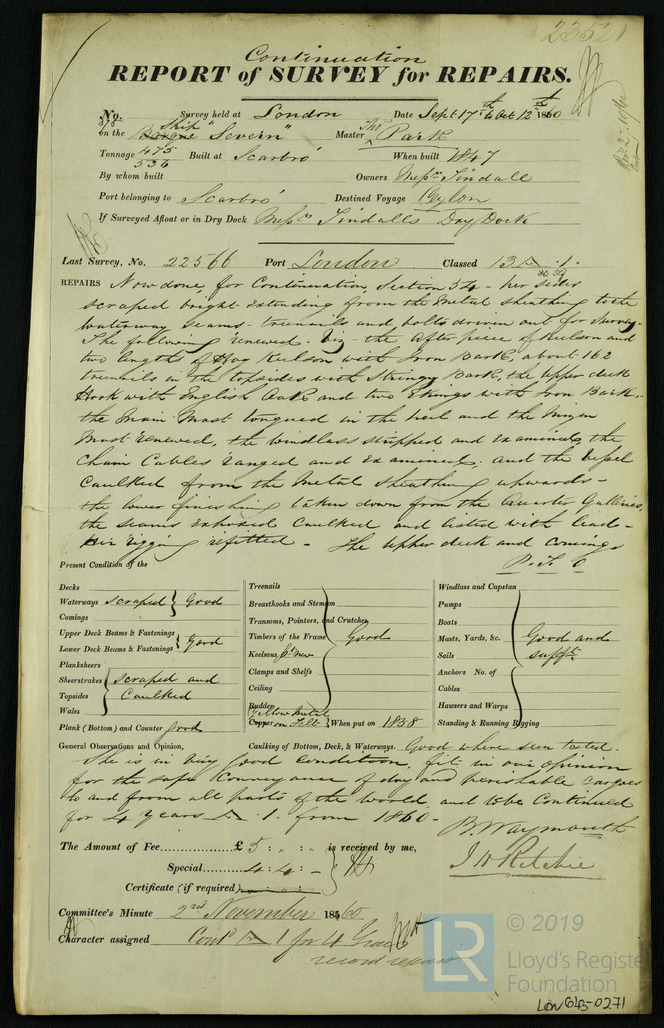 23521
Continuation
REPORT of SURVEY for REPAIRS.
No. Survey held at London Date Sept 17th to Oct 12th 1860
on the Ship "Severn" Master Thos Park
Tonnage 475 Built at Scarbro' When built 1847
536
By whom built Owners Messrs Tindall
Port belonging to Scarbro' Destined Voyage Ceylon
If Surveyed Afloat or in Dry Dock Messrs Tindalls Dry Dock
Last Survey, No. 22566 Port London Classed 13 A 1.
REPAIRS Now done, for Continuation, Section 54 - her sides
scraped bright extending from the Metal sheathing to the
Waterway seams - treenails and bolts driven out for Survey -
The following renewed. Viz - the After piece of Kelson and
two lengths of Hog Keelson with Iron Bark, about 162
treenails in the topsides with Stringy Bark, the upper deck
Hook with English Oak and two Ekings with Iron Bark -
the Main Mast tongued in the heel and the Mizen
Mast renewed, the windlass stripped and examined, the
Chain Cables ranged and examined. and the vessel
Caulked from the Metal sheathing upwards -
the lower finishing taken down from the Quarter Galleries,
the seams exposed caulked and listed with lead -
Her rigging refitted - The upper deck and comings
P.T.O
Present Condition of the
Decks
Waterways scraped } Good
Comings
Upper Deck Beams & Fastenings } Good
Lower Deck Beams & Fastenings
Planksheers
Sheerstrakes scraped and
Topsides Caulked
Wales
Plank (Bottom) and Counter good
Treenails
Breasthooks and Stemson
Transoms, Pointers, and Crutches
Timbers of the Frame Good
Keelsons pt new
Clamps and Shelfs
Ceiling
Rudder
Yellow Metal
Copper on Felt } When put on 1858
Windlass and Capstan
Pumps
Boats
Masts, Yards, &c. Good and
Sails sufft
Anchors No. of
Cables
Hawsers and Warps
Standing & Running Rigging
General Observations and Opinion, Caulking of Bottom, Deck, & Waterways. Good where seen tested.
She is in very good condition, fit in our opinion
for the safe Conveyance of dry and perishable cargoes
to and from all parts of the world, and to be Continued
for 4 years A 1. from 1860 -
B. Waymouth
J W Ritchie
The Amount of Fee......£ 5 : " : " is received by me,
Special...... 4 : 4 : -
Certificate (if required)
Committee's Minute 2nd November 1860
Character assigned Contd A 1 for 4 Years
record repairs
LR
© 2019
Lloyd's Register
Foundation
LON 613-0271